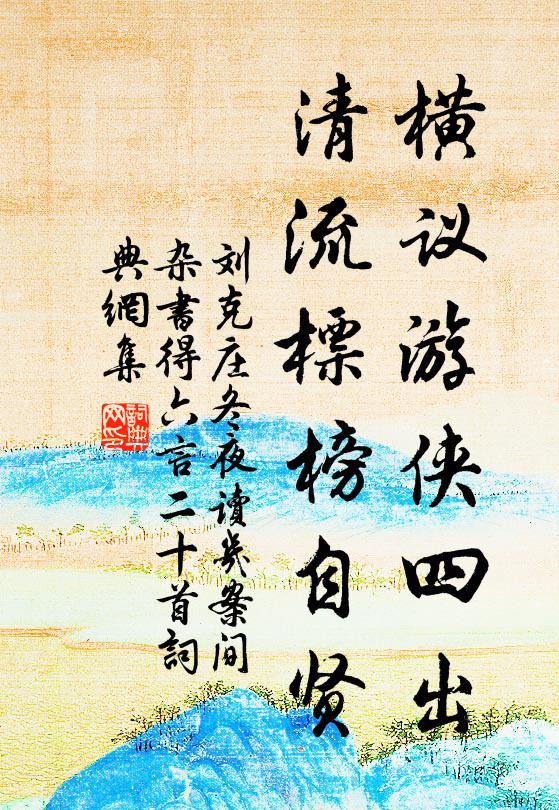 横议游侠四出
清流標榜自贤
刘克庄冬夜读几案间
杂书得六言二十首詞
典網集
詞典網印